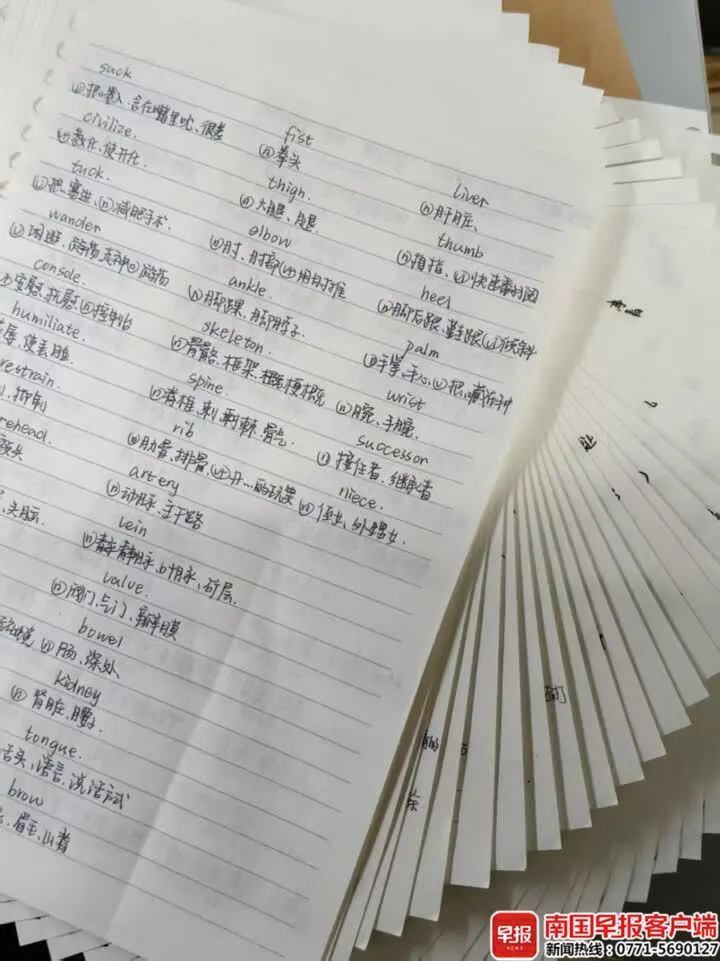 suck
ⓥ把…卷入、含在嘴里吮、很差
civilize.
ⓥ教化、使开化.
tuck.
ⓥ把…塞进、ⓝ减肥手术.
wander
ⓥ闲逛、游荡、走神ⓝ游荡
console.
ⓥ安慰、抚慰ⓝ控制台
humiliate.
restrain.
抑制
forehead.
额头
fist
ⓝ拳头
thigh.
ⓝ大腿、股腿
elbow
ⓝ肘、肘部ⓥ用肘推
ankle
ⓝ脚踝、脚脖子.
skeleton.
ⓝ骨骼、框架、概梗概
spine.
ⓝ脊椎、刺
rib
ⓝ肋骨、排骨、ⓥ开…的玩笑
artery
ⓝ动脉、主干路
vein
ⓝ静脉、叶脉、矿层.
value.
ⓝ阀门、气门、瓣膜
bowel
ⓝ肠、深处、
kidney
ⓝ肾脏、腰子.
tongue.
舌头、语言、说话方式
brow
眉毛、山脊
liver
ⓝ肝脏、
thumb
ⓝ拇指、ⓥ快速翻阅
heel
ⓝ脚后跟、鞋跟ⓥ倾斜
palm
ⓝ手掌、手心、ⓥ把…藏于手中
wrist
ⓝ腕、手腕.
successor
ⓝ接任者、继承者
niece.
ⓝ侄女、外甥女.
早报
NEWS
南国早报客户端
新闻热线：0771-5690127